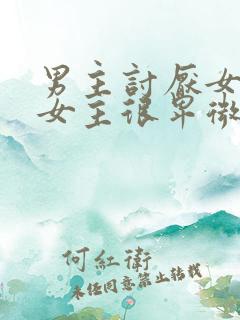 男主討厭女
女主很卑微
何紅衛
未经同意禁止转载